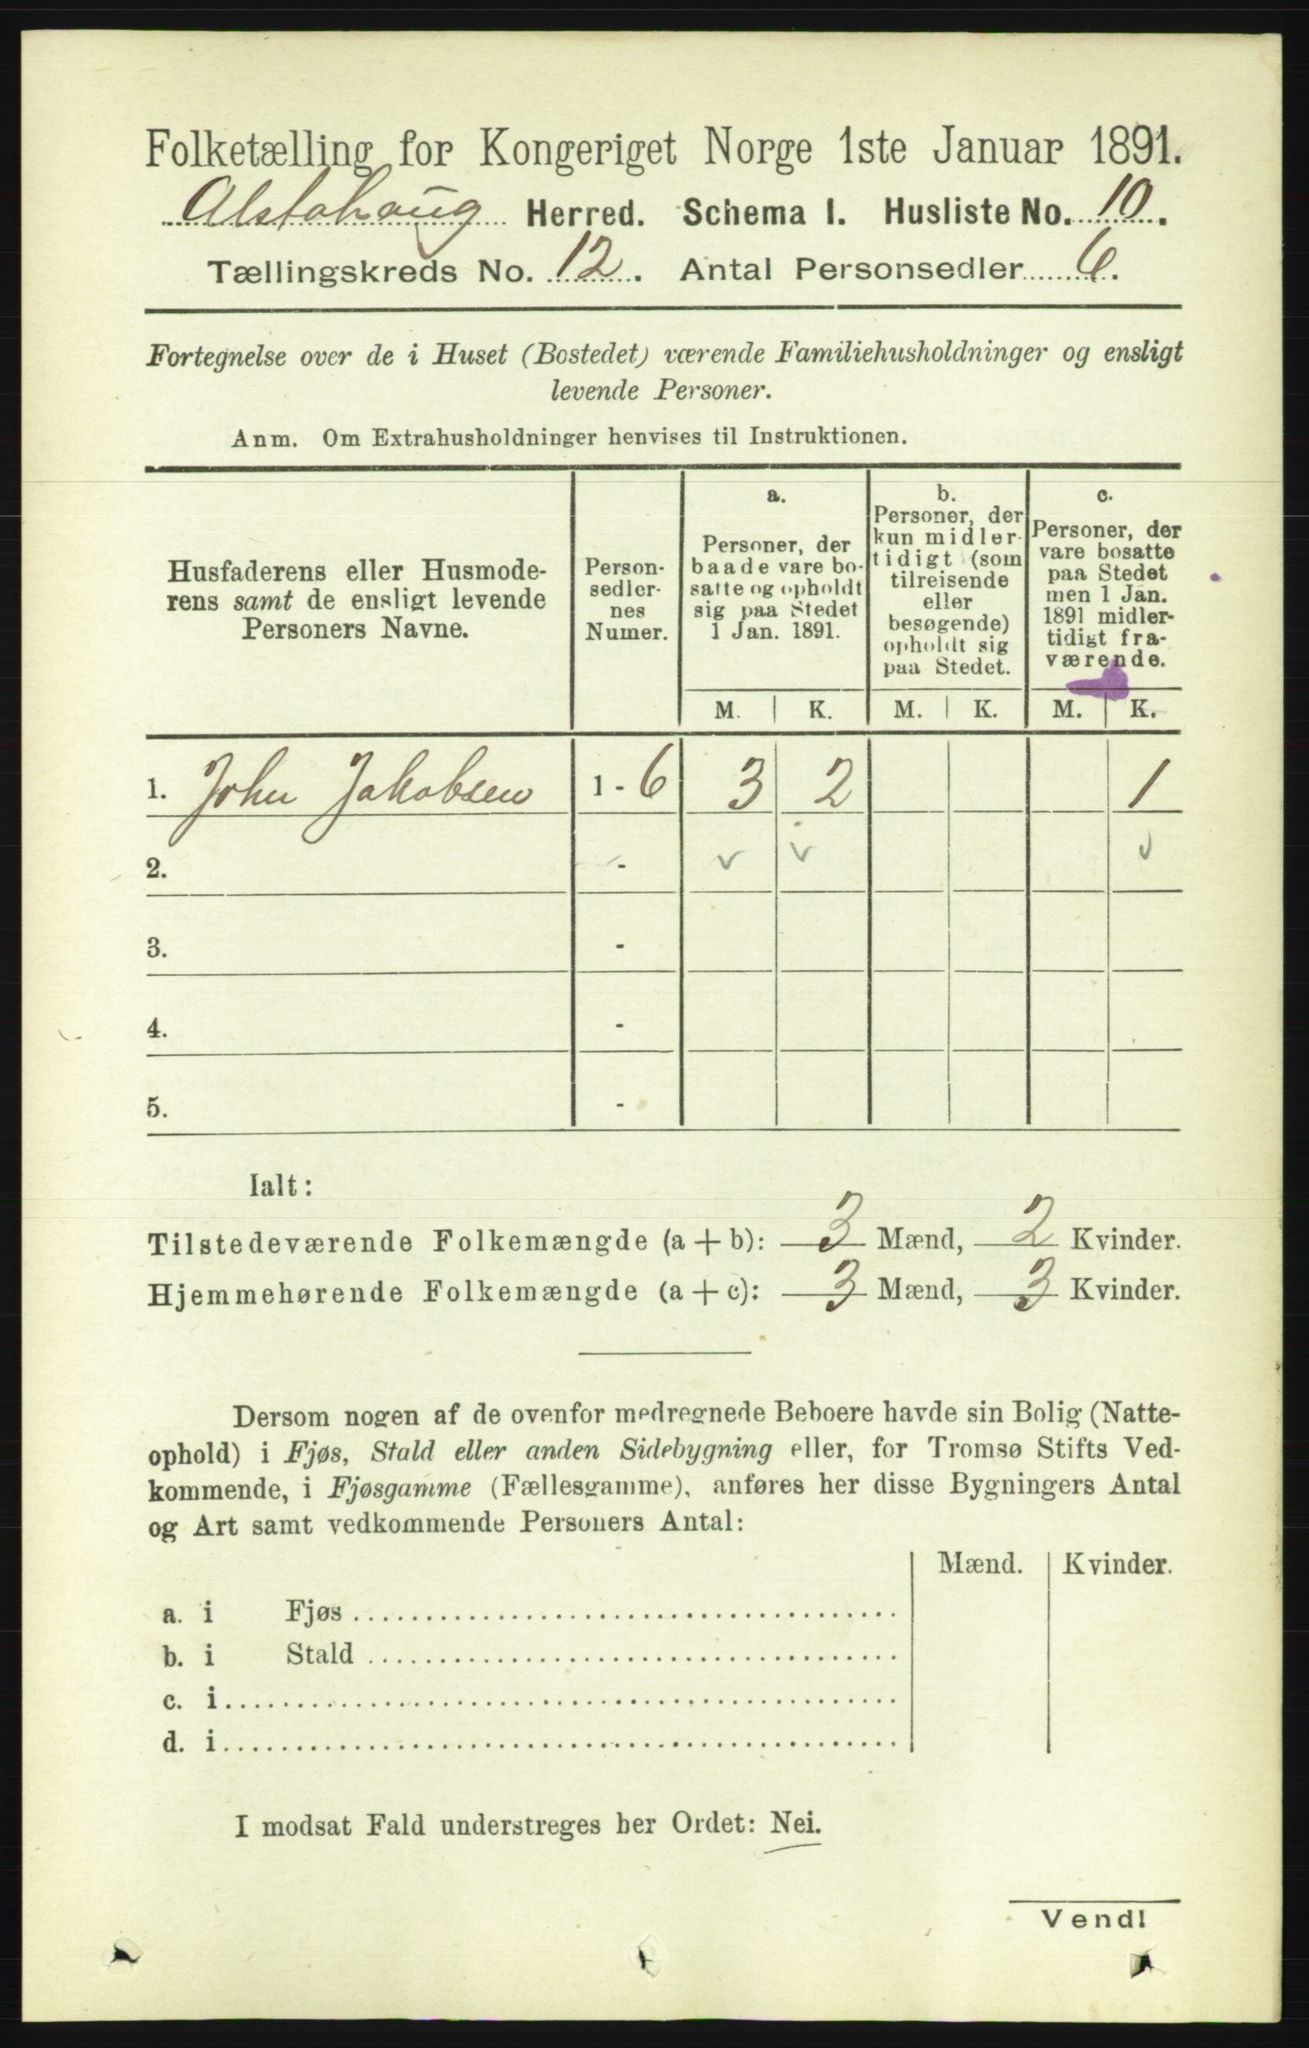 Folketælling for Kongeriget Norge 1ste Januar 1891.
Alstahoug Herred. Schema I. Husliste No. 10.
Tællingskreds No. 12. Antal Personsedler 6.
Fortegnelse over de i Huset (Bostedet) værende Familiehusholdninger og ensligt
levende Personer.
Anm. Om Extrahusholdninger henvises til Instruktionen.
Husfaderens eller Husmode-
rens samt de ensligt levende
Personers Navne.
Person-
sedler-
nes
Numer.
a.
Personer, der
baade vare bo-
satte og opholdt
sig paa Stedet
1 Jan. 1891.
b.
Personer, der
kun midler-
tidigt (som
tilreisende
eller
besøgende)
opholdt sig
paa Stedet.
c.
Personer, der
vare bosatte
paa Stedet
men 1 Jan.
1891 midler-
tidigt fra-
værende.
M. K. M. K. M. K.
1. John Jakobsen 1 - 6 3 2 1
2. - v v v
3. -
4. -
5. -
Ialt:
Tilstedeværende Folkemængde (a + b): 3 Mænd, 2 Kvinder.
Hjemmehørende Folkemængde (a + c): 3 Mænd, 3 Kvinder.
Dersom nogen af de ovenfor medregnede Beboere havde sin Bolig (Natte-
ophold) i Fjøs, Stald eller anden Sidebygning eller, for Tromsø Stifts Ved-
kommende, i Fjøsgamme (Fællesgamme), anføres her disse Bygningers Antal
og Art samt vedkommende Personers Antal:
Mænd. Kvinder.
a. i Fjøs
b. i Stald
c. i
d. i
I modsat Fald understreges her Ordet: Nei.
Vend!